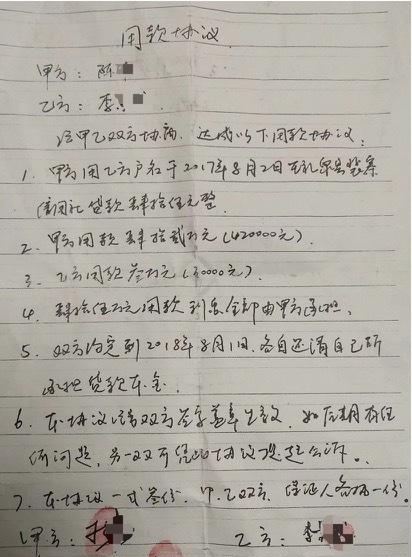 用款协议
甲方：陈
乙方：李
经甲乙双方协商，达成以下用款协议：
1、甲方用乙方户名于2017年8月2日在礼泉县
信用社贷款肆拾伍万元整
2、甲方用款肆拾贰万元（420000元）.
3、乙方用款叁万元（30000元）
4、肆拾伍万元用款利息全部由甲方承担、
5、双方约定到2018年8月1日、各自还清自己所
承担贷款本金.
6、本协议经双方签字盖章生效，如后期有任
何问题，另一双可凭此协议提起公诉。
7、本协议一式叁份，甲、乙双方、保证人各执一份。
甲方：
乙方：李